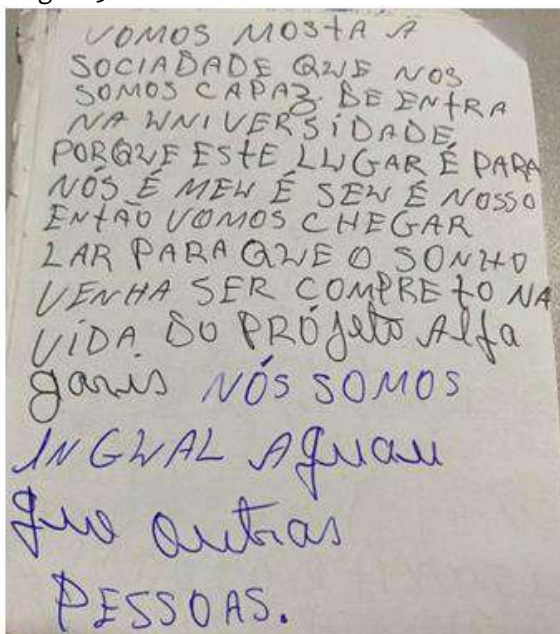 VOMOS MOSTA A
SOCIADADE QUE NOS
SOMOS CAPAZ. DE ENTRA
NA UNIVERSIDADE
PORQUE ESTE LUGAR É PARA
NÓS É MEU É SEU É NOSSO
ENTÃO VOMOS CHEGAR
LAR PARA QUE O SONHO
VENHA SER COMPRETO NA
VIDA DO PRÓJeto Alfa
garis NÓS SOMOS
INGUAL AQuau
Quo outras
PESSOAS.